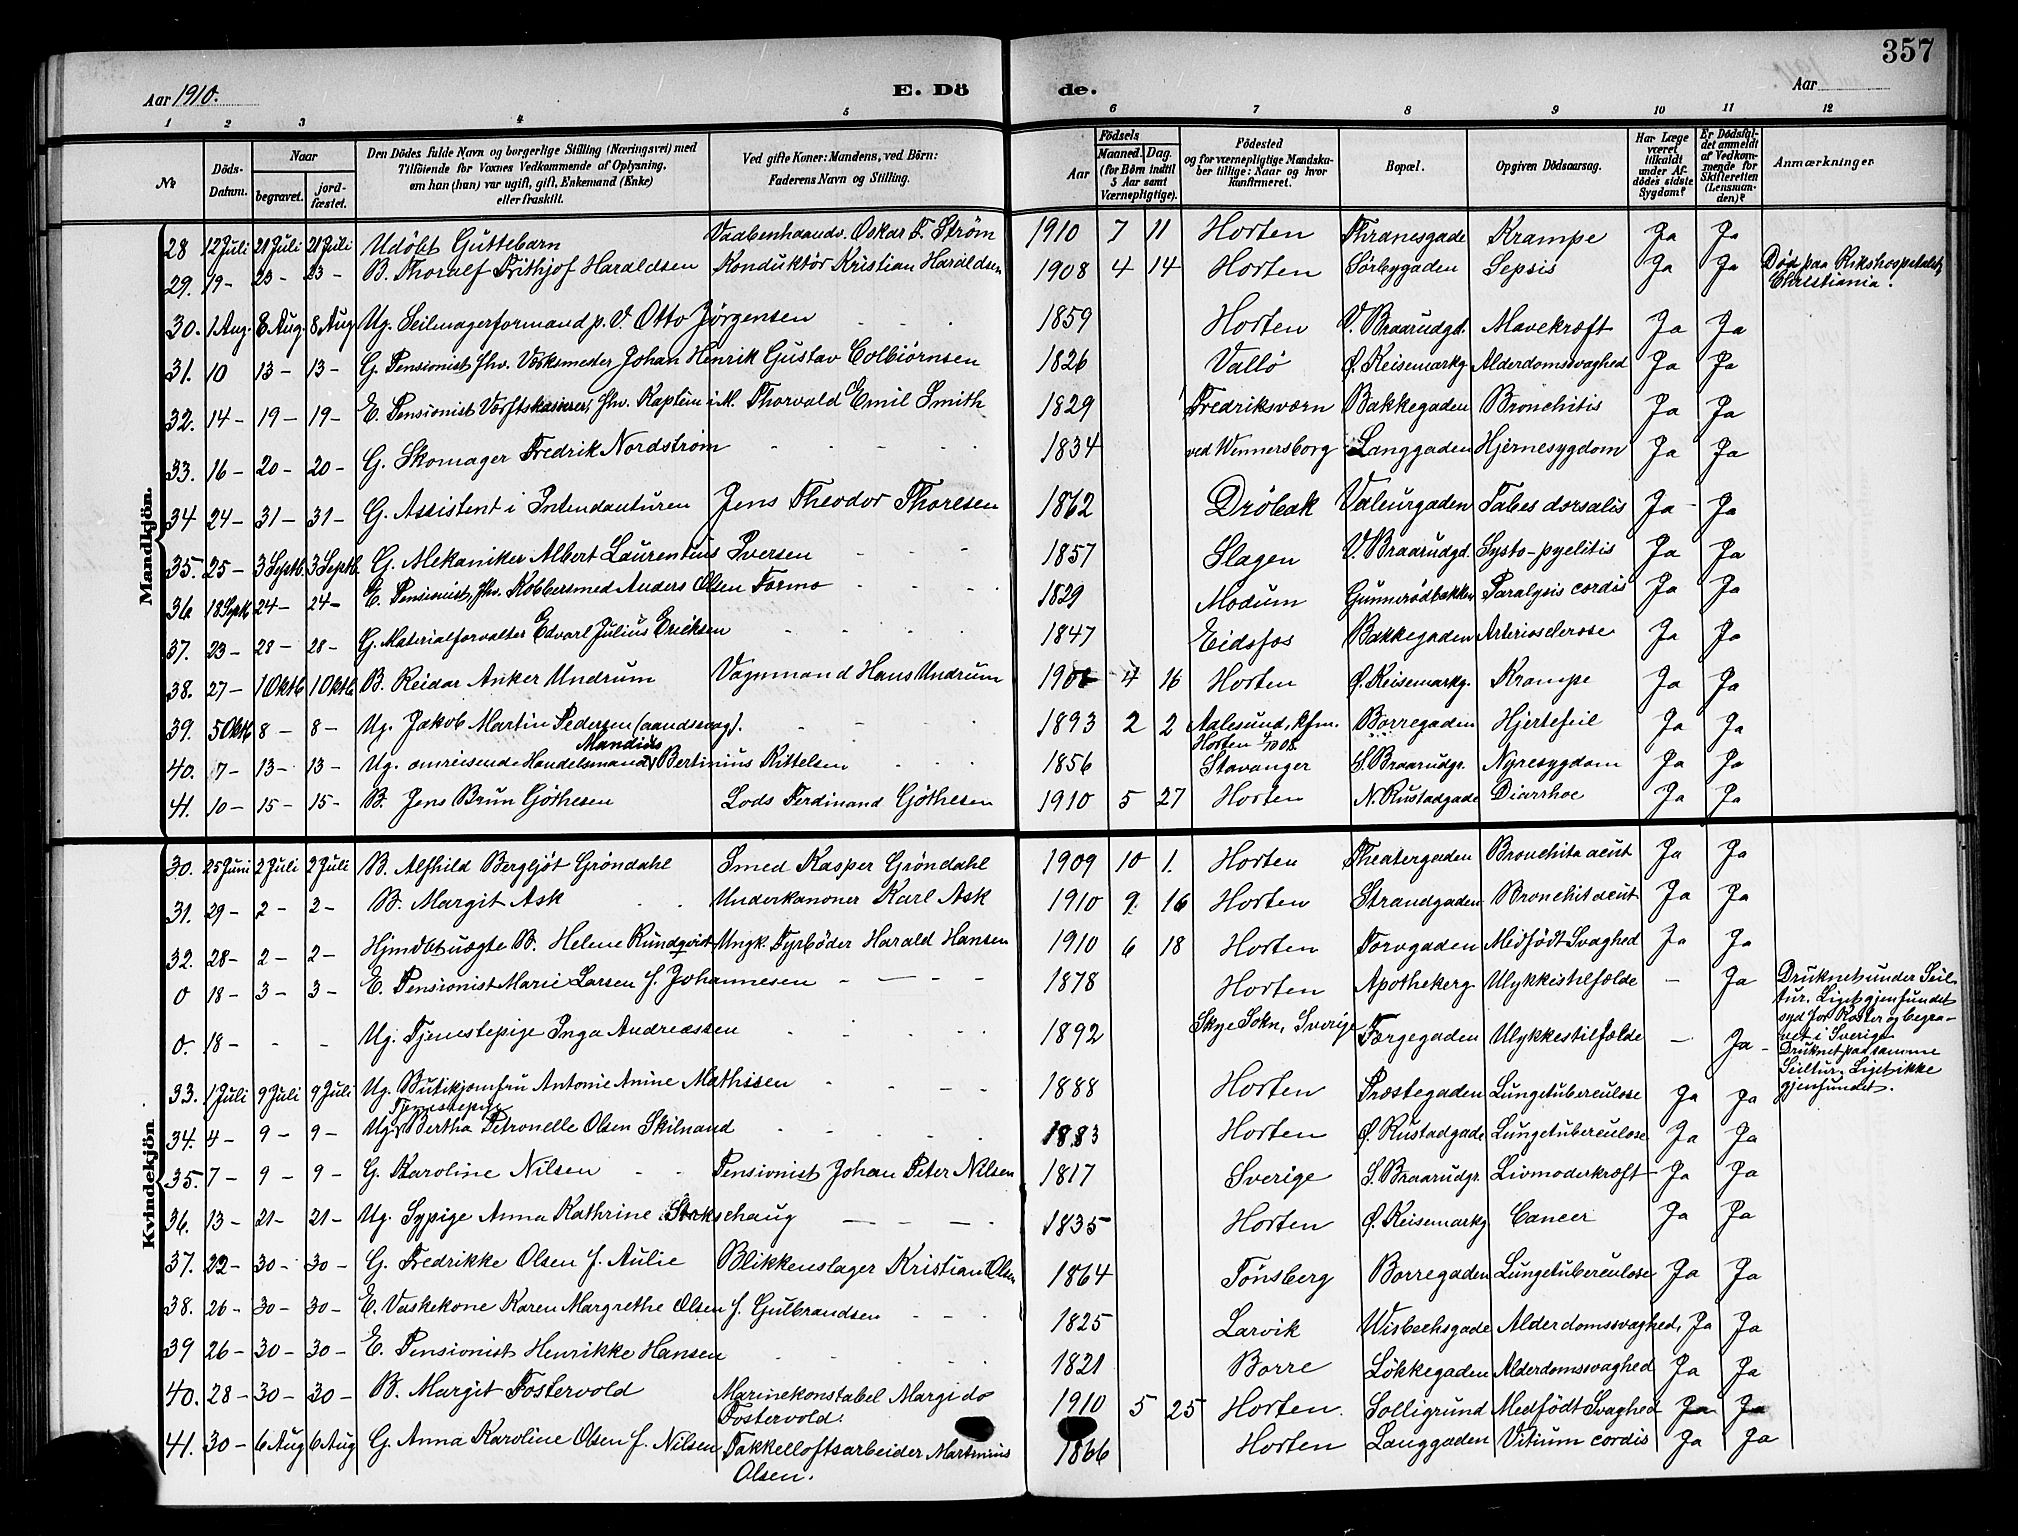 357
Aar 1910. E. Dö de. Aar
1 2 3 4 5 6 7 8 9 10 11 12
№ Döds-Datum. Naar begravet. jord-fæstet. Den Dödes fulde Navn og borgerlige Stilling (Næringsvei) med Tilföiende for Voxnes Vedkommende af Oplysning, om han (hun) var ugift, gift, Enkemand (Enke) eller fraskilt. Ved gifte Koner: Mandens, ved Börn: Faderens Navn og Stilling. Födsels Aar Maaned. Dag. (for Børn indtil 5 Aar samt Værnepligtige). Födested og for værnepligtige Mandska-ber tillige: Naar og hvor konfirmeret. Bopæl. Opgiven Dödsaarsag. Har Læge været tilkaldt under Af-dödes sidste Sygdom? Er Dödsfal-det anmeldt af Vedkom-mende for Skifteretten (Lensman-den)? Anmærkninger
Mandkjön.
28 12 Juli 21 Juli 21 Juli Udöbt Guttebarn Vaabenhaandv. Oskar F. Ström 1910 7 11 Horten Thranesgade Krampe Ja Ja
29. 19 - 23 - 23 - B. Thoralf Frithjof Haraldsen Konduktör Kristian Haraldsen 1908 4 14 Horten Sörbygaden Sepsis Ja Ja Död paa Rikshospitalet, Christiania.
30. 1 Aug. 8 Aug. 8 Aug Ug. Seilmagerformand p. V. Otto Jörgensen - - - 1859 Horten V. Braarudgd. Mavekræft Ja Ja
31. 10 13 - 13 - G. Pensionist fhv. Værksmester Johan Henrik Gustav Colbiörnsen 1826 Vallö Ø. Keisemarkg. Alderdomssvaghed Ja Ja
32. 14 - 19 - 19 - E. Pensionist Værftskasserer, fhv. Kaptein i M. Thorvald Emil Smith 1829 Fredriksværn Bakkegaden Bronchitis Ja Ja
33. 16 - 20 - 20 - G. Skomager Fredrik Nordström - - - - 1834 ved Wennersborg Langgaden Hjernesygdom Ja Ja
34 24 - 31 - 31 - G. Assistent i Intendanturen Jens Theodor Thoresen 1862 Dröbak Valeurgaden Tabes dorsalis Ja - Ja
35. 25 - 3 Septb. 3 Septb. G. Mekaniker Albert Laurentius Iversen - - - 1857 Slagen V. Braarudgd. Systo-pyelitis Ja Ja
36 18 Septb 24 - 24 - E. Pensionist, fhv. Kobbersmed Anders Olsen Formo - - - 1829 Modum Gunnerödbakken Paralysis cordis Ja Ja
37. 23 - 28 - 28 - G. Materialforvalter Edvarl Julius Eriksen - - - 1847 Eidsfos Bakkegaden Arteriosclerose Ja Ja
38. 27 - 1 Oktb 1 Oktb. B. Reidar Anker Undrum Vognmand Hans Undrum 4 16 Horten Ø. Keisemarkg. Krampe Ja Ja
39. 5 Oktb 8 - 8 - Ug. Jakob Martin Pedersen (aandssvag). - - - 1893 2 2 Aalesund, kfm. Horten 4/10 08. Borregaden Hjertefeil Ja Ja
40. 7 - 13 - 13 - Ug. omreisende Handelsmand Mandius Bertinius Kittelsen - - 1856 Stavanger S. Braarudgr. Nyresygdom Ja Ja
41. 10 - 15 - 15 - B. Jens Brun Göthesen Lods Ferdinand Göthesen 1910 5 27 Horten N. Rustadgade Diarrhoe Ja Ja
Kvindekjön
30. 25 Juni 2 Juli 2 Juli B. Alfhild Bergljöt Gröndahl Smed Kasper Gröndahl 1909 10 1. Horten Theatergaden Bronchita acut Ja Ja
31. 29 - 2 - 2 - B. Margit Ask - - Underkanoner Karl Ask 1910 9. 16 Horten Strandgaden Bronchit acut Ja Ja
32. 28 - 2 - 2 - Hjmdbt uægte B. Helene Rundqvist Ungk. Fyrböder Harald Hansen 1910 6 18 Horten Torvgaden Medfödt Svaghed Ja Ja
0 18 - 3 - 3 - E. Pensionist Marie Larsen f. Johannesen - - - - 1878 Horten Apothekerg Ulykkestilfælde - Ja Druknet under Seil-tur. Liget gjenfundet syd for Koster og begra-vet i Sverige
0. 18 - - - Ug. Tjenestepige Inga Andreassen - - - - 1892 Skye Sokn, Sverige Færgegaden Ulykkestilfælde - Ja - Druknet paa samme Seiltur. Liget ikke gjenfundet.
33. 1 Juli 9 Juli 9 Juli Ug. Butikjomfru Antonie Anine Mathisen - - - - 1888 Horten Prostegaden Lungetuberculose Ja Ja
34. 4 - 9 - 9 - Ug. Tjenestepige Bertha Petronelle Olsen Skilnand - - - - 1883 Horten Ø. Rustadgade Lungetuberculose Ja Ja
35. 7 - 9 - 9 - G. Karoline Nilsen - - Pensionist Johan Peter Nilsen 1817 Sverige S. Braarudgr. Livmoderkræft Ja Ja
36. 13 - 21 - 21 - Ug. Sypige Anna Kathrine Storkschaug - - - - 1835 Horten Ø. Keisemarkg Cancer Ja Ja
37. 22 - 30 - 30 - G. Fredrikke Olsen f. Aulie Blikkenslager Kristian Olsen 1864 Tönsberg Borregaden Lungetuberculose Ja Ja
38. 26 - 30 - 30 - E. Vaskekone Karen Margrethe Olsen f. Gulbrandsen - - - 1825 Larvik Wisbechsgade Alderdomssvaghed, Ja Ja
39 26 - 30 - 30 - E. Pensionist Henrikke Hansen - - - - 1821 Borre Lökkegaden Alderdomssvaghed Ja Ja
40. 28 - 30 - 30 - B. Margit Fostervold Marinekonstabel Margido Fostervold. 1910 5 25 Horten. Solligrund Medfödt Svaghed Ja Ja
41. 30 - 6 Aug 6 Aug G. Anna Karoline Olsen f. Nilsen Takkelloftsarbeider Martinius Olsen. 1866 Horten Langgaden Vitium cordis Ja Ja